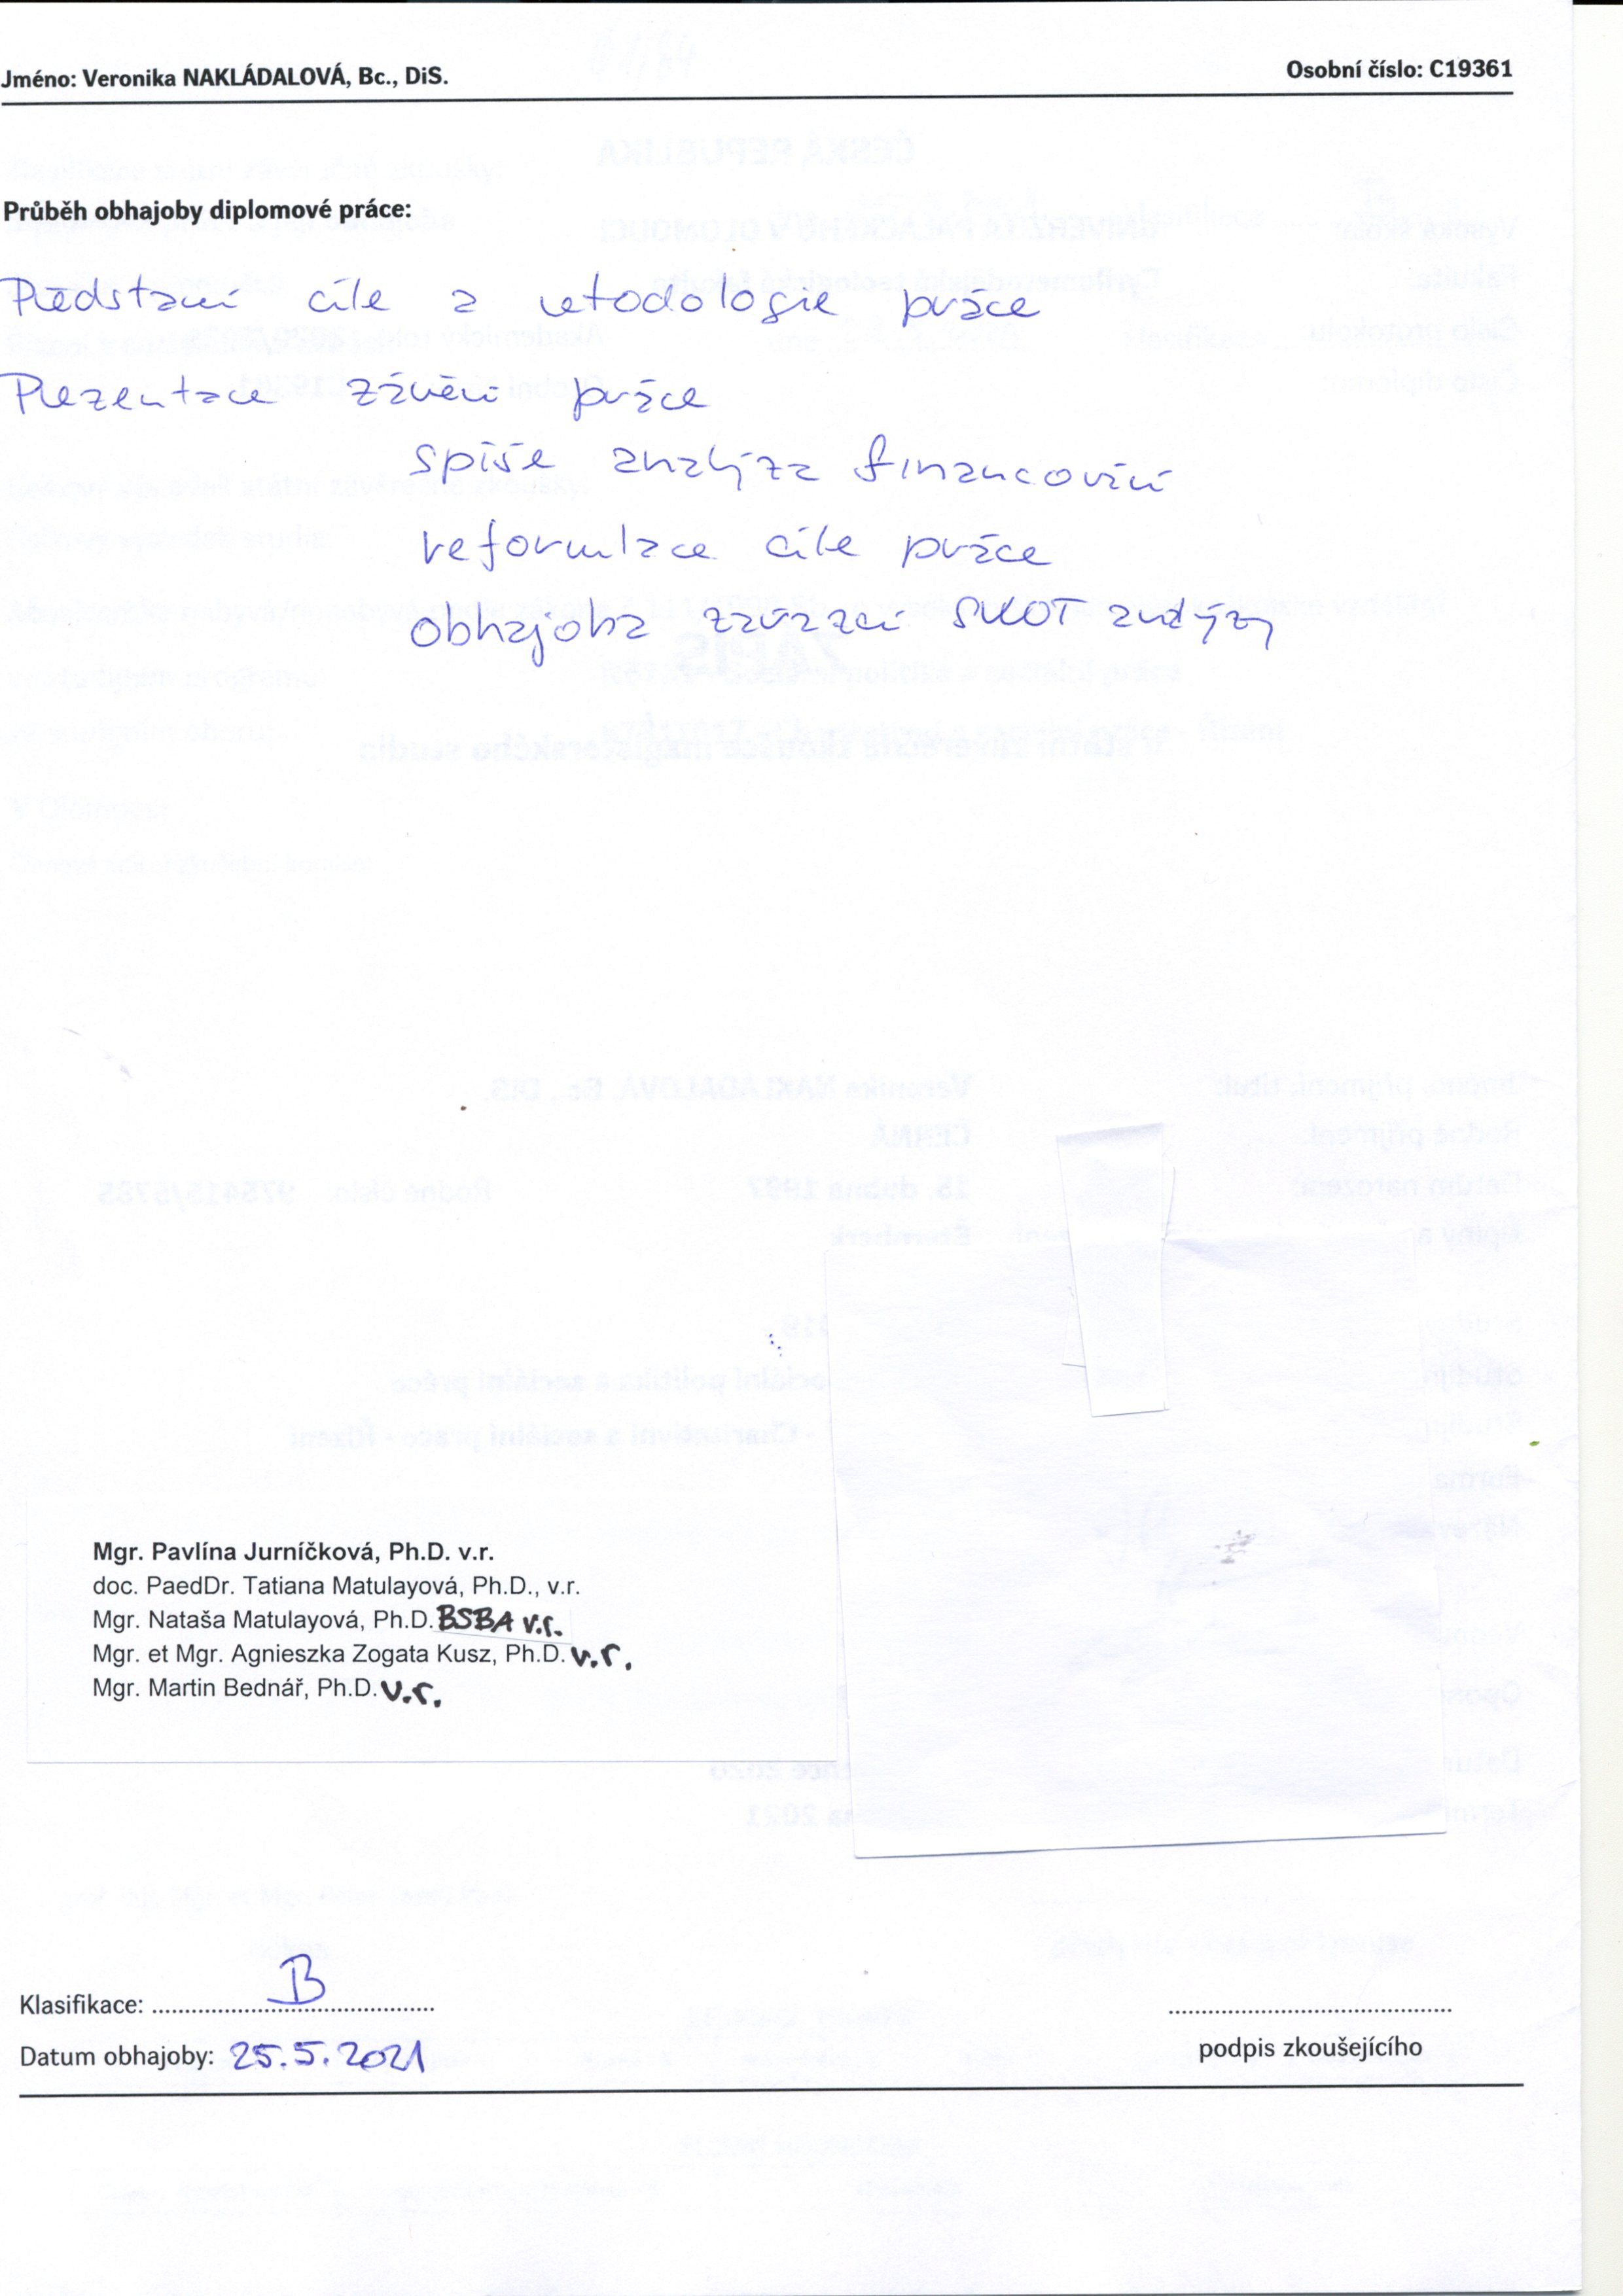 Jméno: Veronika NAKLÁDALOVÁ, Bc., DiS.
Osobní číslo: C19361
Průběh obhajoby diplomové práce:
Představení cíle a metodologie práce
Prezentace závěrů práce
spíše analýza financování
reformulace cíle práce
obhajoba zařazení SWOT analýzy
Mgr. Pavlína Jurníčková, Ph.D. v.r.
doc. PaedDr. Tatiana Matulayová, Ph.D., v.r.
Mgr. Nataša Matulayová, Ph.D. BSBA v.r.
Mgr. et Mgr. Agnieszka Zogata Kusz, Ph.D. v.r.
Mgr. Martin Bednář, Ph.D. v.r.
Klasifikace: B
Datum obhajoby: 25.5.2021
podpis zkoušejícího